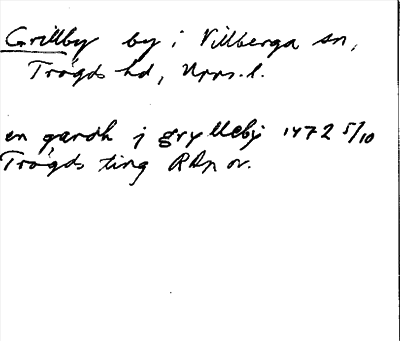 Grillby by i Villberga sn,
Trögds hd, Upps. l.
en gardh j gryllebÿ 1472 5/10
Trögds ting RAp or.